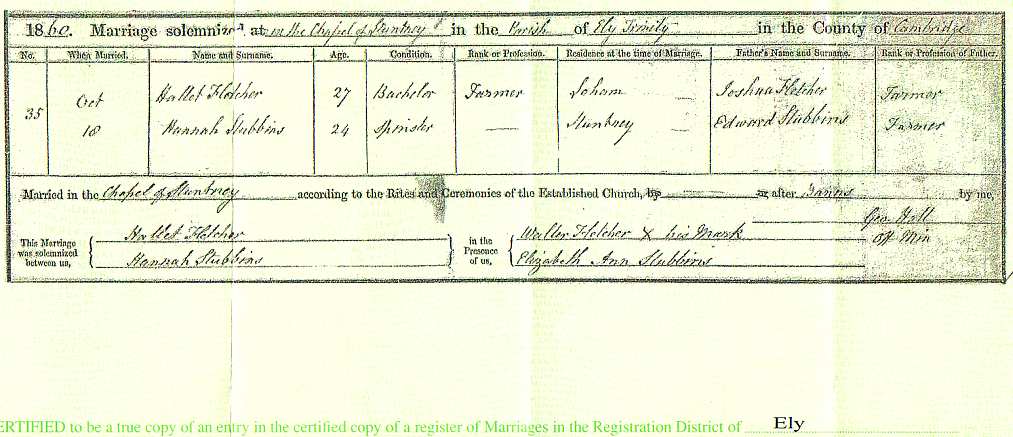 1860. Marriage solemnized at in the Chapel of Stuntney in the Parish of Ely Trinity in the County of Cambridge
No. When Married. Name and Surname. Age. Condition. Rank or Profession. Residence at the time of Marriage. Father's Name and Surname. Rank or Profession of Father.
35 Oct Hallet Fletcher 27 Bachelor Farmer Soham Joshua Fletcher Farmer
18 Hannah Stubbins 24 Spinster — Stuntney Edward Stubbins Farmer
Married in the Chapel of Stuntney according to the Rites and Ceremonies of the Established Church, by or after Banns by me,
Geo Hall
Off Min
This Marriage was solemnized between us, Hallet Fletcher
Hannah Stubbins
In the Presence of us, Walter Fletcher X his Mark
Elizabeth Ann Stubbins
ERTIFIED to be a true copy of an entry in the certified copy of a register of Marriages in the Registration District of Ely